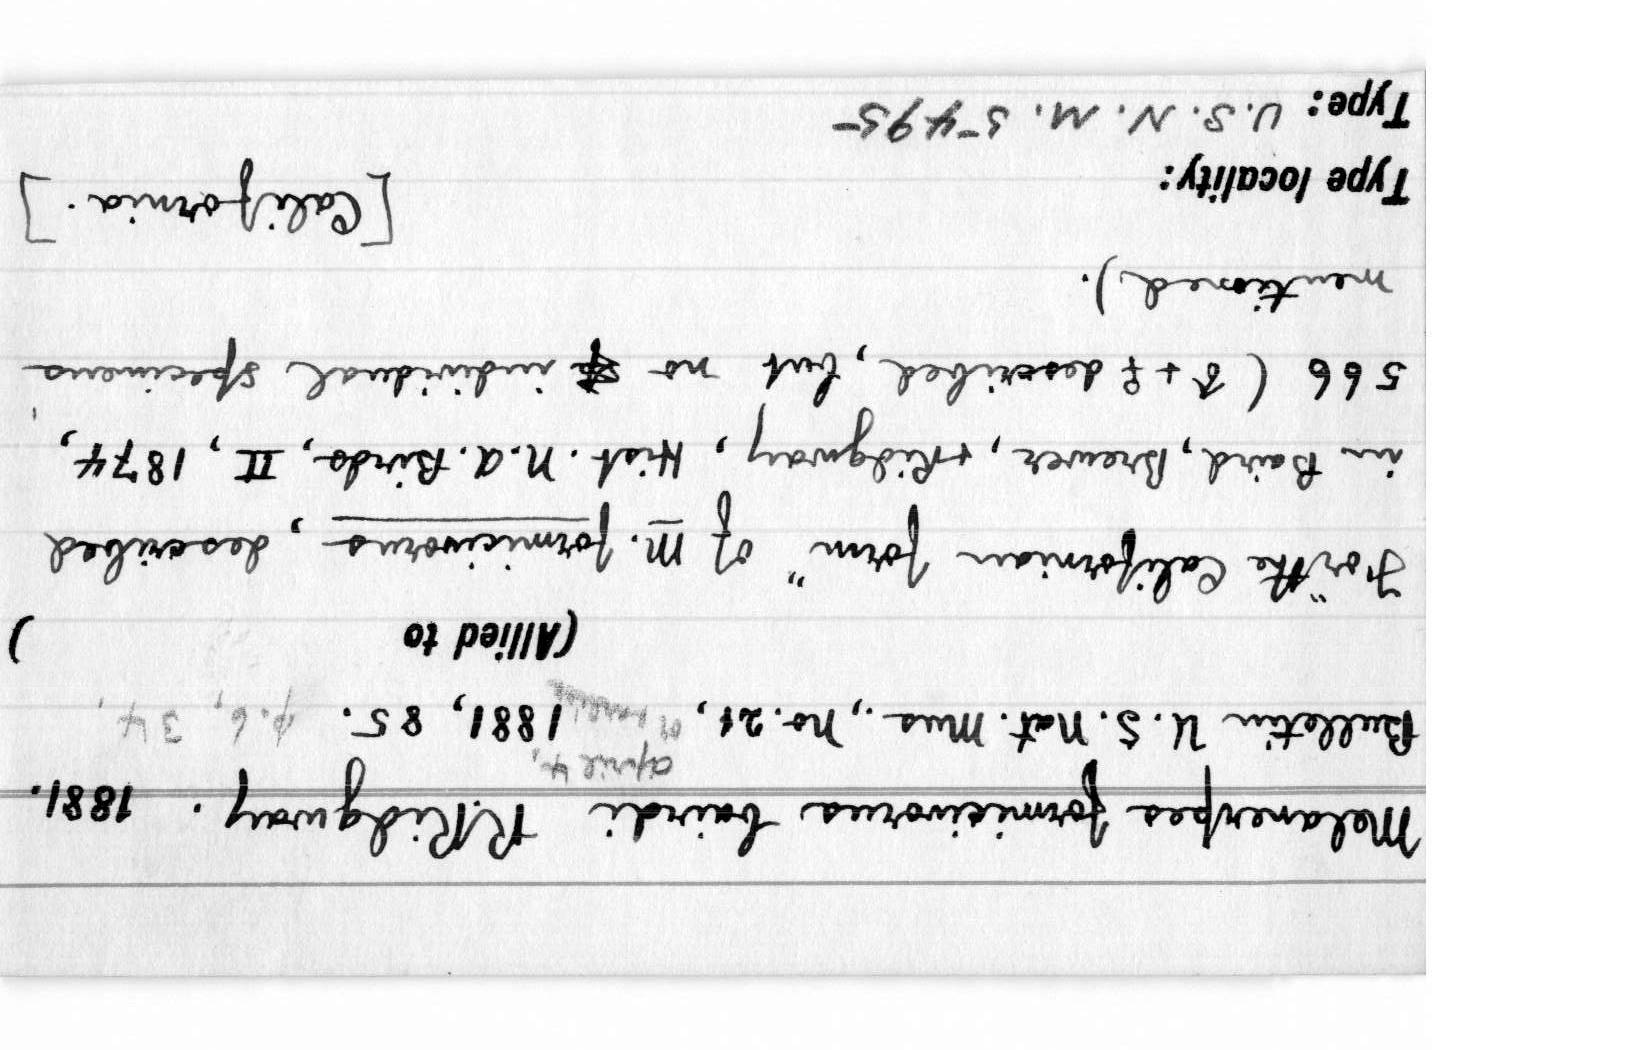 Melanerpes formicivorus bairdi R.Ridgway. 1881.
april 4,
Bulletin U.S. Nat. Mus., no. 21, 1881, 85. p. 6, 34,
(Allied to )
For "the Californian form" of M. formicivorus, described
in Baird, Brewer, + Ridgway, Hist. N.A. Birds, II, 1874,
566 (♂ + ♀ described, but no individual specimens
mentioned).
Type locality: [California.]
Type: U.S.N.M. 5495